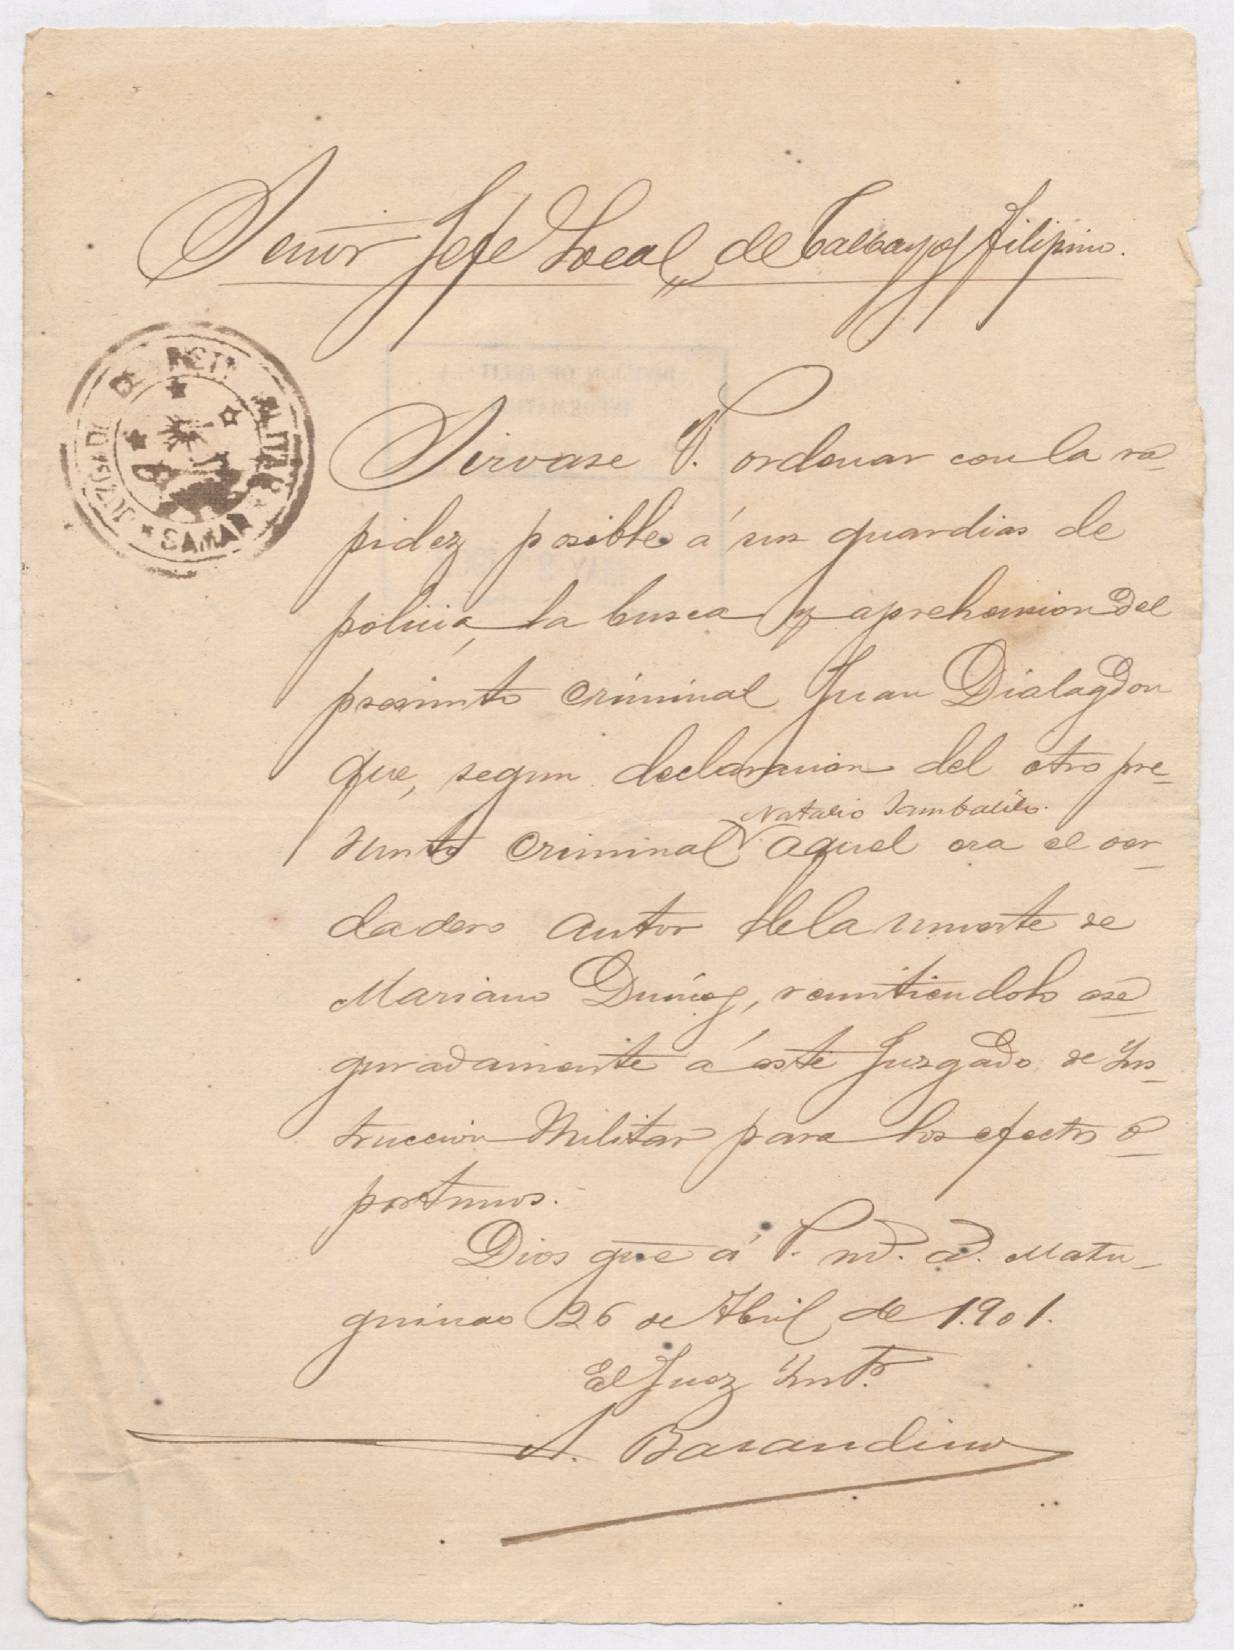 Señor Jefe Local, de Calbayog filipino.
JUZGADO DE INSTN MILITAR
SAMAR
Sirvase V. ordenar con la ra-
pidez posible á sus guardias de
policia, la busca y aprehension del
presunto criminal Juan Dialagdon
que, segun declaracion del otro pre-
Natalio Sambalilo.
sunto criminal aquel era el ver-
dadero autor de la muerte de
Mariano, remitiendolo ase-
guradamente á este Juzgado de Ins-
truccion Militar para los efectos o-
portunos.
Dios gue á V. m.d. a.d. Matu-
guinao 26 de Abril de 1.901.
El Juez Instr.
A. Barandino